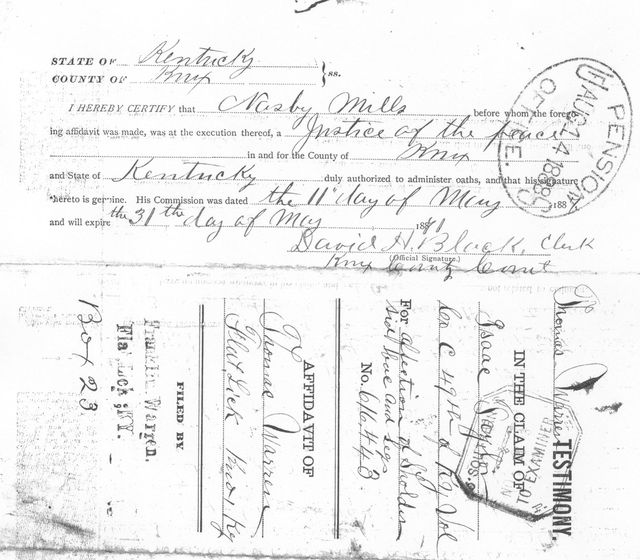 STATE OF Kentucky
COUNTY OF Knox } ss.
I HEREBY CERTIFY that Nasby Mills before whom the forego-
ing affidavit was made, was at the execution thereof, a Justice of the peace
in and for the County of Knox
and State of Kentucky duly authorized to administer oaths, and that his signature
thereto is genuine. His Commission was dated the 11 day of May 188
and will expire the 31th day of May 188
David H. Black, Clerk
(Official Signature.)
Knox County Court
PENSION OFFICE.
AUG 14 1888
TESTIMONY.
Thomas Warren
IN THE CLAIM OF
Isaac
Co C 49th Ky Vol
For affection of Shoulder
and Legs
No. 616.443
AFFIDAVIT OF
Thomas Warren
Flat Lick Knox Ky
FILED BY
Franklin Warren.
Flat Lick, KY.
Box 23
EXAMINER